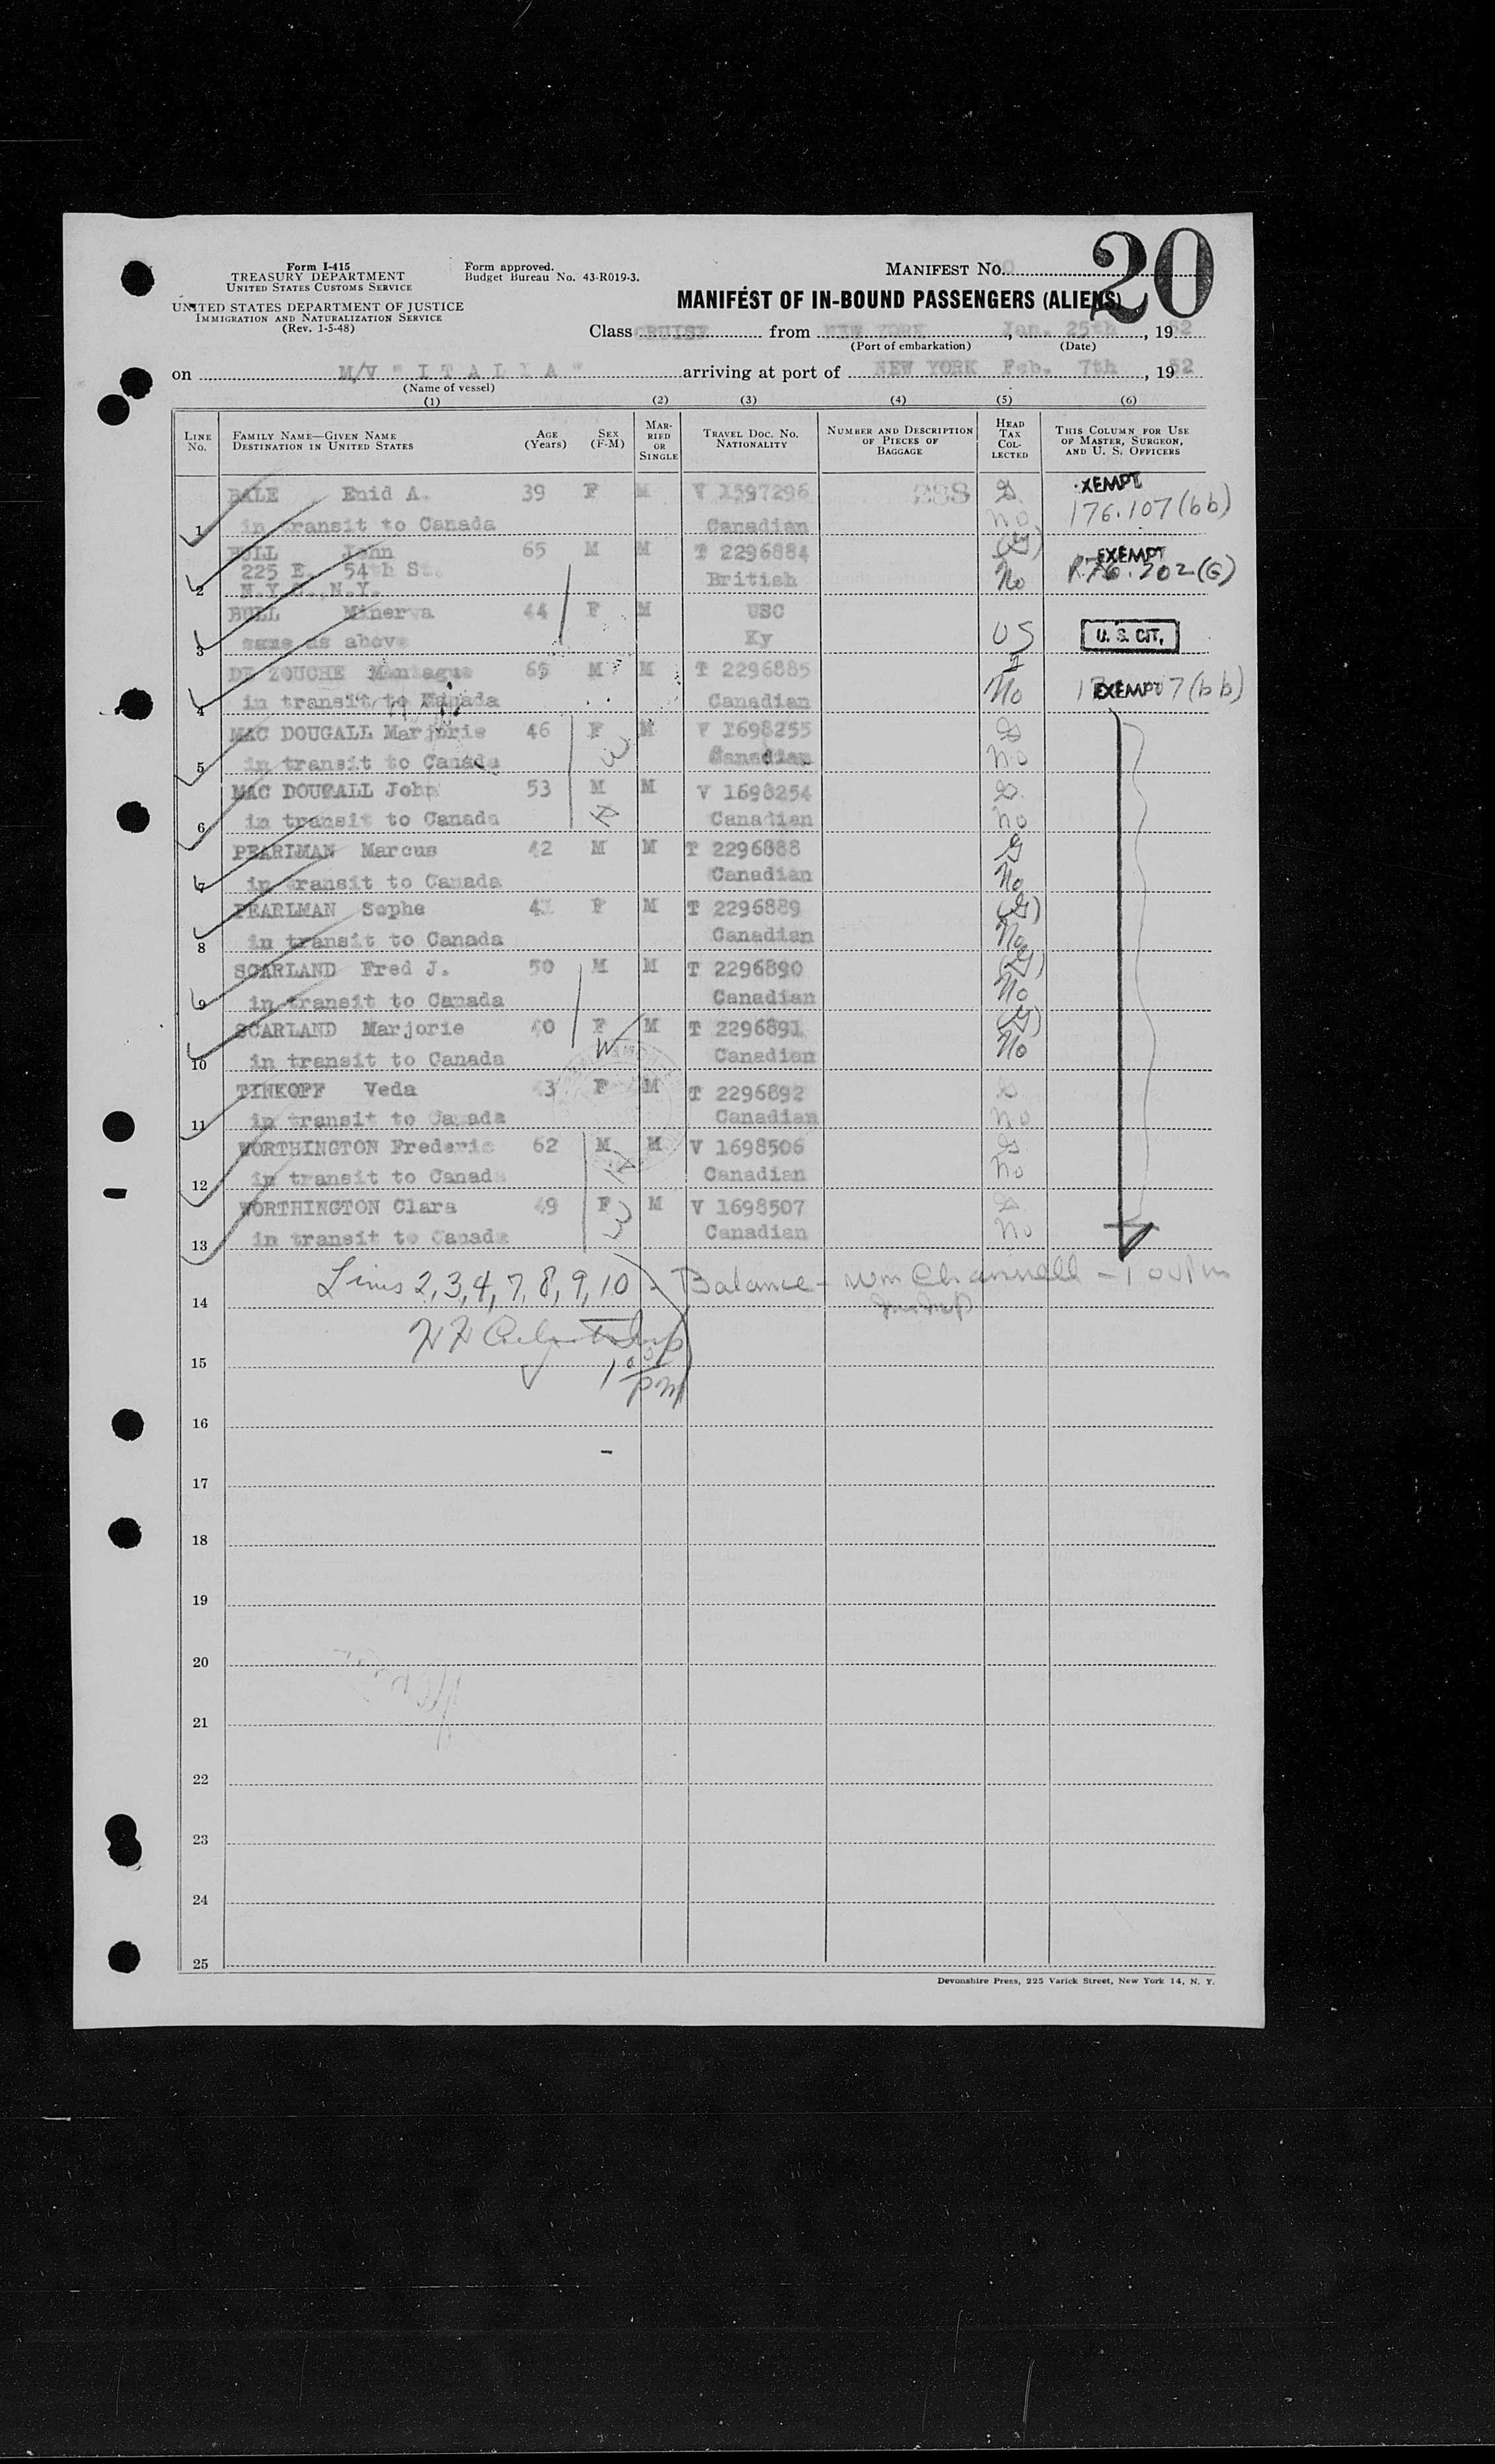 Form I-415
TREASURY DEPARTMENT
UNITED STATES CUSTOMS SERVICE
UNITED STATES DEPARTMENT OF JUSTICE
IMMIGRATION AND NATURALIZATION SERVICE
(Rev. 1-5-48)
Form approved.
Budget Bureau No. 43-R019-3.
MANIFEST No. 20
MANIFEST OF IN-BOUND PASSENGERS (ALIENS)
Class CRUISE from NEW YORK, Jan. 25th, 1952
(Port of embarkation) (Date)
on M/V "ITALIA" arriving at port of NEW YORK Feb. 7th, 1952
(Name of vessel)
(1) (2) (3) (4) (5) (6)
LINE No. FAMILY NAME—GIVEN NAME DESTINATION IN UNITED STATES AGE (Years) SEX (F-M) MARRIED OR SINGLE TRAVEL DOC. NO. NATIONALITY NUMBER AND DESCRIPTION OF PIECES OF BAGGAGE HEAD TAX COLLECTED THIS COLUMN FOR USE OF MASTER, SURGEON, AND U. S. OFFICERS
BALE Enid A. 39 F M V 1597296 288 EXEMPT
1 in transit to Canada Canadian No 176.107(bb)
BULL John 65 M M T 2296884 EXEMPT
225 E. 54th St.
2 N.Y.C., N.Y. British No 176.202(G)
BULL Minerva 44 F M USC
3 same as above Ky US U. S. CIT.
DE ZOUCHE Montague 65 M M T 2296885
4 in transit to Canada Canadian No EXEMPT 7(bb)
MAC DOUGALL Marjorie 46 F M V 1698255
5 in transit to Canada Canadian No
MAC DOUGALL John 53 M M V 1698254
6 in transit to Canada Canadian No
PEARLMAN Marcus 42 M M T 2296888
7 in transit to Canada Canadian No
PEARLMAN Sophe 41 F M T 2296889
8 in transit to Canada Canadian No
SCARLAND Fred J. 50 M M T 2296890
9 in transit to Canada Canadian No
SCARLAND Marjorie 40 F M T 2296891
10 in transit to Canada Canadian No
TINKOFF Veda 43 F M T 2296892
11 in transit to Canada Canadian No
WORTHINGTON Frederic 62 M M V 1698506
12 in transit to Canada Canadian No
WORTHINGTON Clara 49 F M V 1698507
13 in transit to Canada Canadian No
Lines 2, 3, 4, 7, 8, 9, 10 - Balance - Wm Channell
14
15
pm
16
17
18
19
20
21
22
23
24
25
Devonshire Press, 225 Varick Street, New York 14, N. Y.